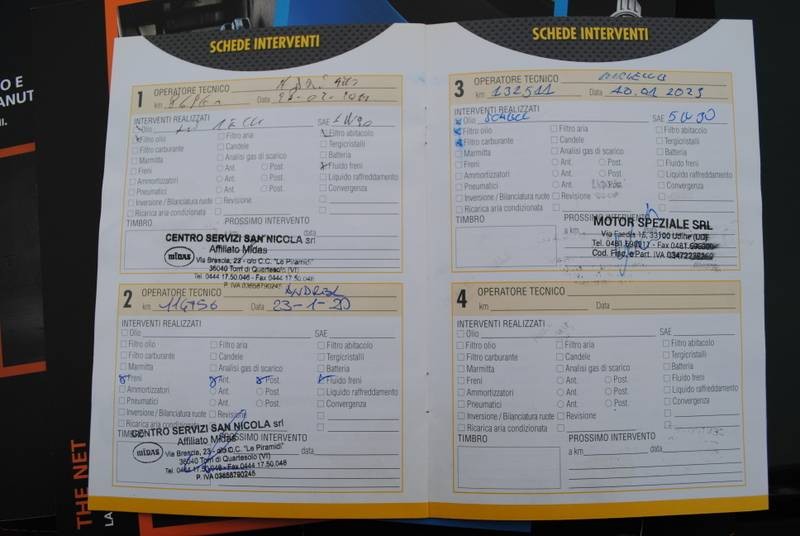 SCHEDE INTERVENTI
1 OPERATORE TECNICO
km Data
INTERVENTI REALIZZATI
Olio SAE
Filtro olio Filtro aria Filtro abitacolo
Filtro carburante Candele Tergicristalli
Marmitta Analisi gas di scarico Batteria
Freni Ant. Post. Fluido freni
Ammortizzatori Ant. Post. Liquido raffreddamento
Pneumatici Ant. Post. Convergenza
Inversione / Bilanciatura ruote Revisione
Ricarica aria condizionata
TIMBRO PROSSIMO INTERVENTO
CENTRO SERVIZI SAN NICOLA srl
Affiliato Midas
MIDAS
Via Brescia, 23 - c/o C.C. "Le Piramidi"
36040 Torri di Quartesolo (VI)
Tel. 0444 17.50.046 - Fax 0444 17.50.048
P. IVA 03658790245
2 OPERATORE TECNICO ANDREA
km 114756 Data 23-1-20
INTERVENTI REALIZZATI
Olio SAE
Filtro olio Filtro aria Filtro abitacolo
Filtro carburante Candele Tergicristalli
Marmitta Analisi gas di scarico Batteria
Freni Ant. Post. Fluido freni
Ammortizzatori Ant. Post. Liquido raffreddamento
Pneumatici Ant. Post. Convergenza
Inversione / Bilanciatura ruote Revisione
Ricarica aria condizionata
TIMBRO
CENTRO SERVIZI SAN NICOLA srl
Affiliato Midas
MIDAS
Via Brescia, 23 - c/o C.C. "Le Piramidi"
36040 Torri di Quartesolo (VI)
Tel. 0444 17.50.046 - Fax 0444 17.50.048
P. IVA 03658790245
data
SCHEDE INTERVENTI
3 OPERATORE TECNICO
km 132511 Data 10.01 2023
INTERVENTI REALIZZATI
Olio SAE 5W30
Filtro olio Filtro aria Filtro abitacolo
Filtro carburante Candele Tergicristalli
Marmitta Analisi gas di scarico Batteria
Freni Ant. Post. Fluido freni
Ammortizzatori Ant. Post. Liquido raffreddamento
Pneumatici Ant. Convergenza
Inversione / Bilanciatura ruote Revisione
Ricarica aria condizionata
TIMBRO PROSSIMO INTERVENTO
MOTOR SPEZIALE SRL
33100 Udine (UD)
4 OPERATORE TECNICO
km Data
INTERVENTI REALIZZATI
Olio SAE
Filtro olio Filtro aria Filtro abitacolo
Filtro carburante Candele Tergicristalli
Marmitta Analisi gas di scarico Batteria
Freni Ant. Post. Fluido freni
Ammortizzatori Ant. Post. Liquido raffreddamento
Pneumatici Ant. Post. Convergenza
Inversione / Bilanciatura ruote Revisione
Ricarica aria condizionata
TIMBRO PROSSIMO INTERVENTO
a km data
THE NET